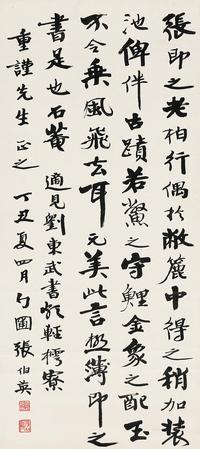 張即之老柏行偶於敝簏中得之稍加裝
池俾伴古蹟若鱉之守鯉金象之配玉
不令乘風飛去耳元美此言極薄即之
書是也石菴 適見劉東武書頗輕樗寮
重謹先生正之 丁丑夏四月勺圃張伯英